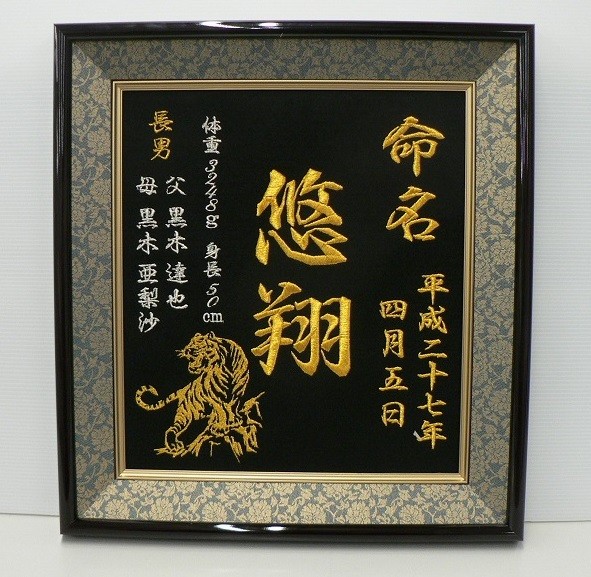 命名
平成二十七年
四月五日
悠翔
体重3248g 身長50cm
長男
父 黒木 達也
母 黒木 亜梨沙